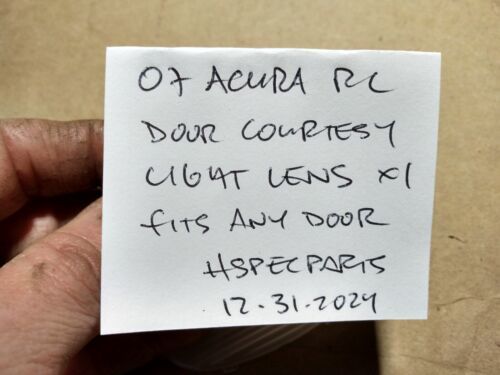 07 ACURA RL
DOOR COURTESY
LIGHT LENS X1
FITS ANY DOOR
HSPECPARTS
12.31.2024